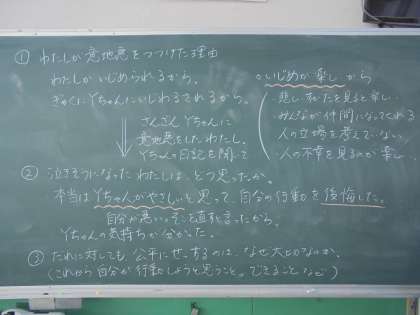 ① わたしが意地悪をつづけた理由
わたしがいじめられるから。
ぎゃくにYちゃんにいじわるされるから。
○いじめが楽しいから
・悲しい
を見ると楽しい
・みんなが仲間になってくれる
・人の立場を考えていない
・人の不幸を見るのが楽しい
さんざんYちゃんに
意地悪をしたわたし。
Yちゃんの日記を聞いて
② 泣きそうになったわたしは、どう思ったか。
本当はYちゃんがやさしいと思って、自分の行動を後悔した。
自分が悪い。そこを直そ
と言ったから。
Yちゃんの気持ちが分かった。
③ だれに対しても、公平にせっするのは、なぜ大切なのか。
(これから自分が行動しようと思うこと。できることなど)